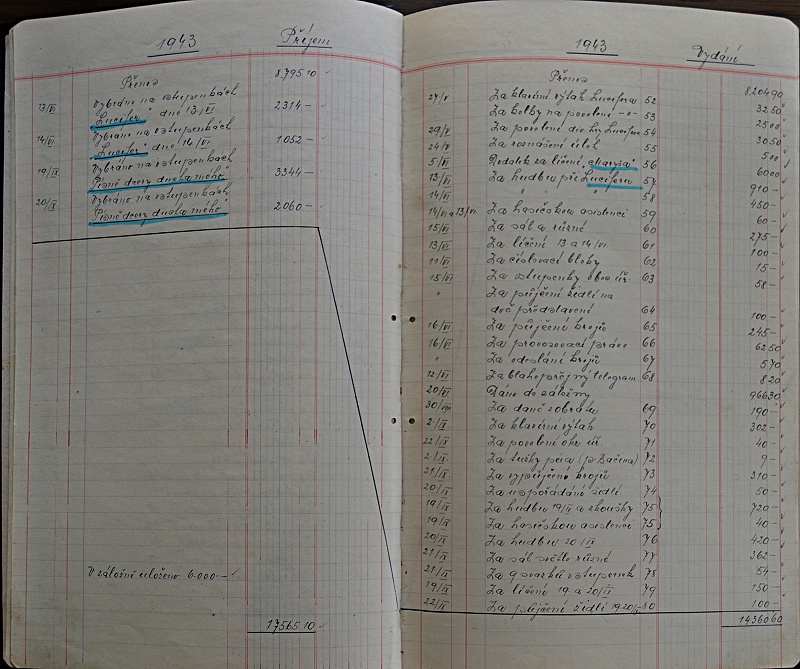 1943 Příjem
Přenos 8.795 10
13/VI. Vybráno na vstupenkách
"Lucifer" dne 13./VI. 2314 —
14/VI. Vybráno na vstupenkách
"Lucifer" dne 14/VI. 1052 —
19/IX Vybráno na vstupenkách
"Písně dcery 3344 —
20/IX Vybráno na vstupenkách
"Písně dcery 2.060 —
V záložně uloženo 6.000 —
17565.10
1943 Vydání
Přenos 8204 90
27/V Za klavírní výtah Lucifera 52 32 50
Za kolky na povolení 53 25 00
29/V Za povolení Lucifera 54 30 50
24/V Za roznášení 55 500
5/VI 56 6000
13/VI Za hudbu při Luciferu 57 910 —
14/VI " " 58 450 —
14/VI a 13/VI Za hasičskou asistenci 59 60 —
15/VI Za sál a různé 60 275 —
13/VI Za líčení 13 a 14/VI. 61 100 —
11/VI Za číslovací bloky 62 15 —
15/VI Za vstupenky 63 58 —
" Za půjčení židlí na
dvě představení 64 100 —
16/VI Za půjčení krojů 65 245 —
16/VI Za provozovací právo 66 62 50
" Za odeslání krojů 67 5 70
12/VI Za blahopřejný telegram 68 8 20
20/VI Dáno do záložny 966 30
30/VIII Za daně 69 190 —
2/IX Za klavírní výtah 70 302 —
22/IX Za povolení okr. úř. 71 40 —
2/IX Za tužky péra (p. Bačina) 72 9 —
21/IX Za vypůjčení krojů 73 310 —
20/IX Za uspořádání židlí 74 50 —
19/IX Za hudbu 19/IX a zkoušky 75 720 —
19/IX Za hasičskou asistenci 75 40 —
20/IX Za hudbu 20/IX 76 420 —
21/IX Za sál světlo různé 77 362 —
21/IX Za 9 svazků vstupenek 78 54 —
19/IX Za líčení 19 a 20/IX 79 150 —
22/IX Za půjčení židlí 19 20/IX 80 100 —
14360 60